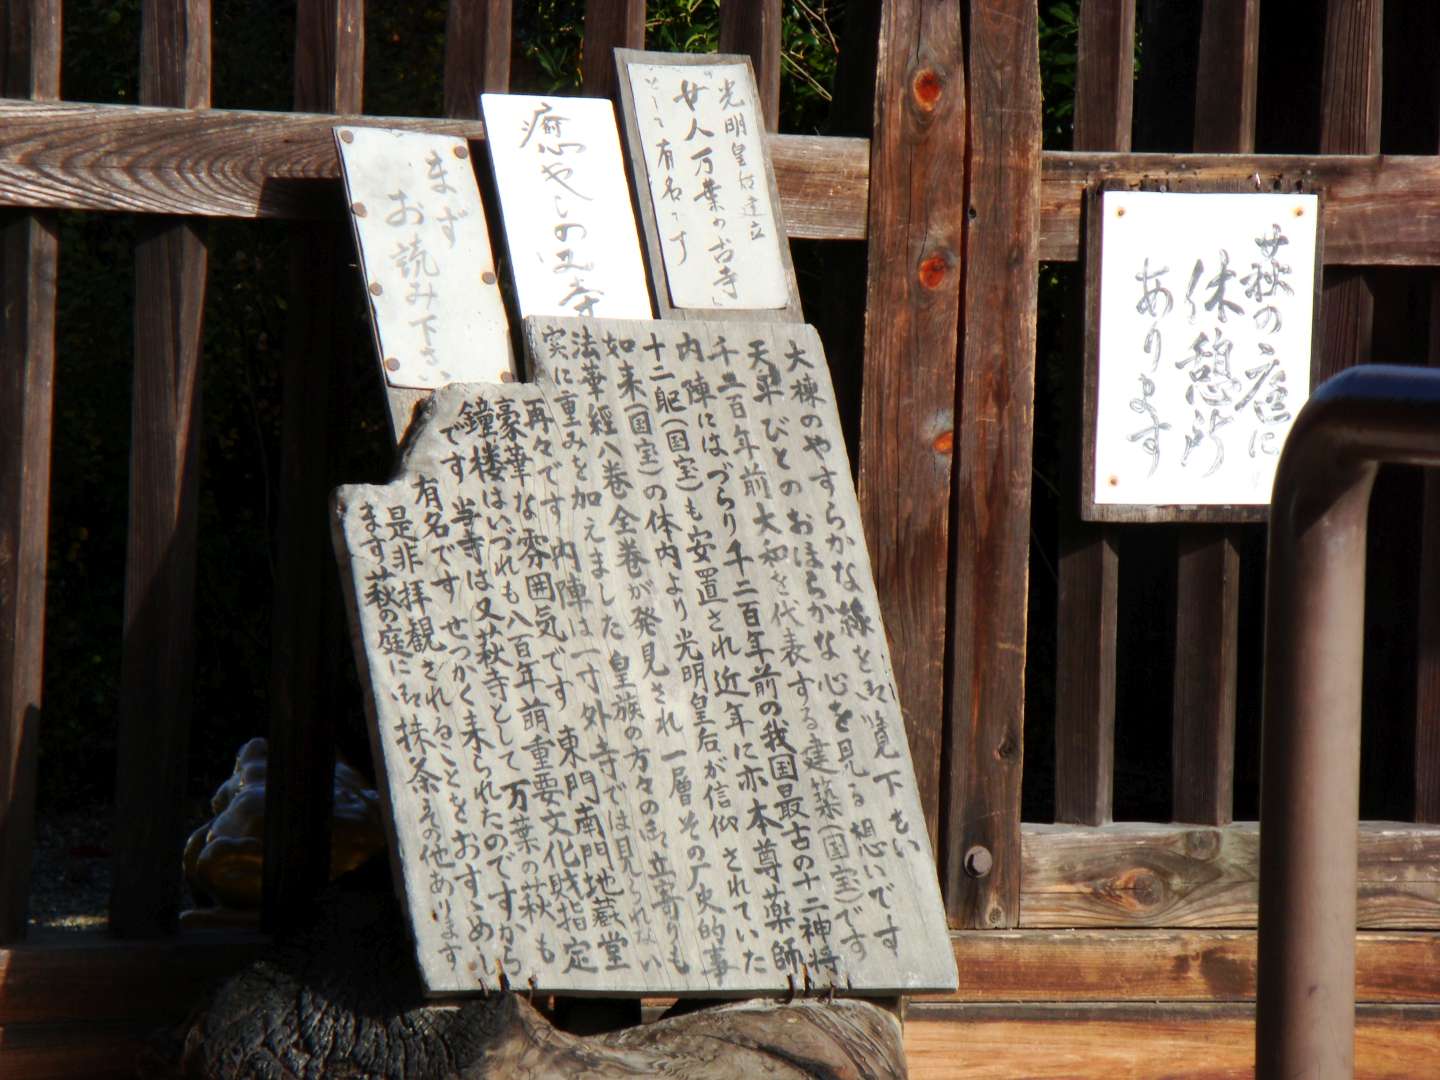 まず
お読み下さい
癒やしのみ寺
光明皇后建立
「女人万葉の古寺」
として有名です
大棟のやすらかな線を御覧下さい
天平びとのおほらかな心を見る想いです
千二百年前大和を代表する建築(国宝)です
内陣にはづらり千二百年前の我国最古の十二神将
十二躯(国宝)も安置され近年に亦本尊薬師
如来(国宝)の体内より光明皇后が信仰されていた
法華經八巻全巻が発見され一層その歴史的事
実に重みを加えました皇族の方々の御立寄りも
再々です内陣は一寸外寺では見られない
豪華な雰囲気です東門南門地蔵堂
鐘楼はいづれも八百年前重要文化財指定
です当寺は又萩寺として万葉の萩も
有名ですせつかく来られたのですから
是非拝観されることをおすゝめし
ます萩の庭に御抹茶その他あります
萩の庭に
休憩所
あります